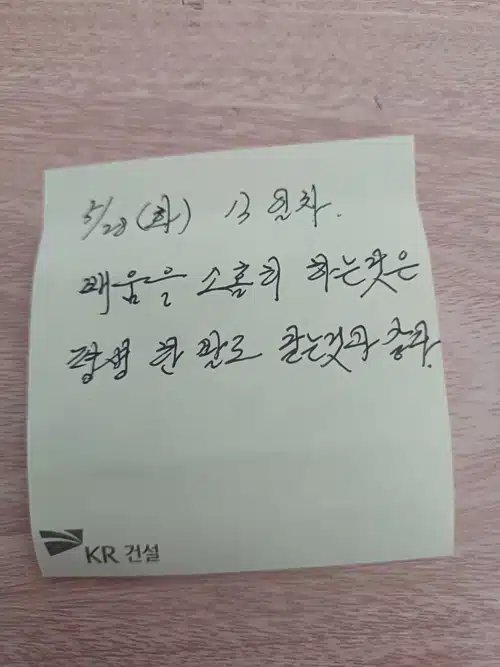 5/28 (화) 13 일차.
배움을 소홀히 하는것은
평생 한 발로 걷는것과 같다.
KR 건설